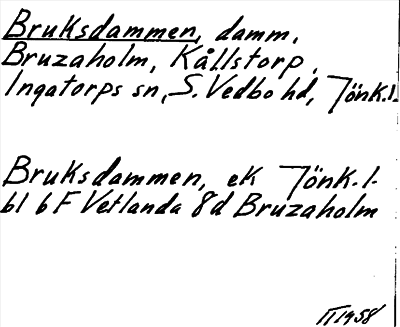 Bruksdammen, damm,
Bruzaholm, Kållstorp,
Ingatorps sn, S. Vedbo hd, Jönk.l.
Bruksdammen, ek Jönk.l.
bl 6 F Vetlanda 8d Bruzaholm
TT 1958